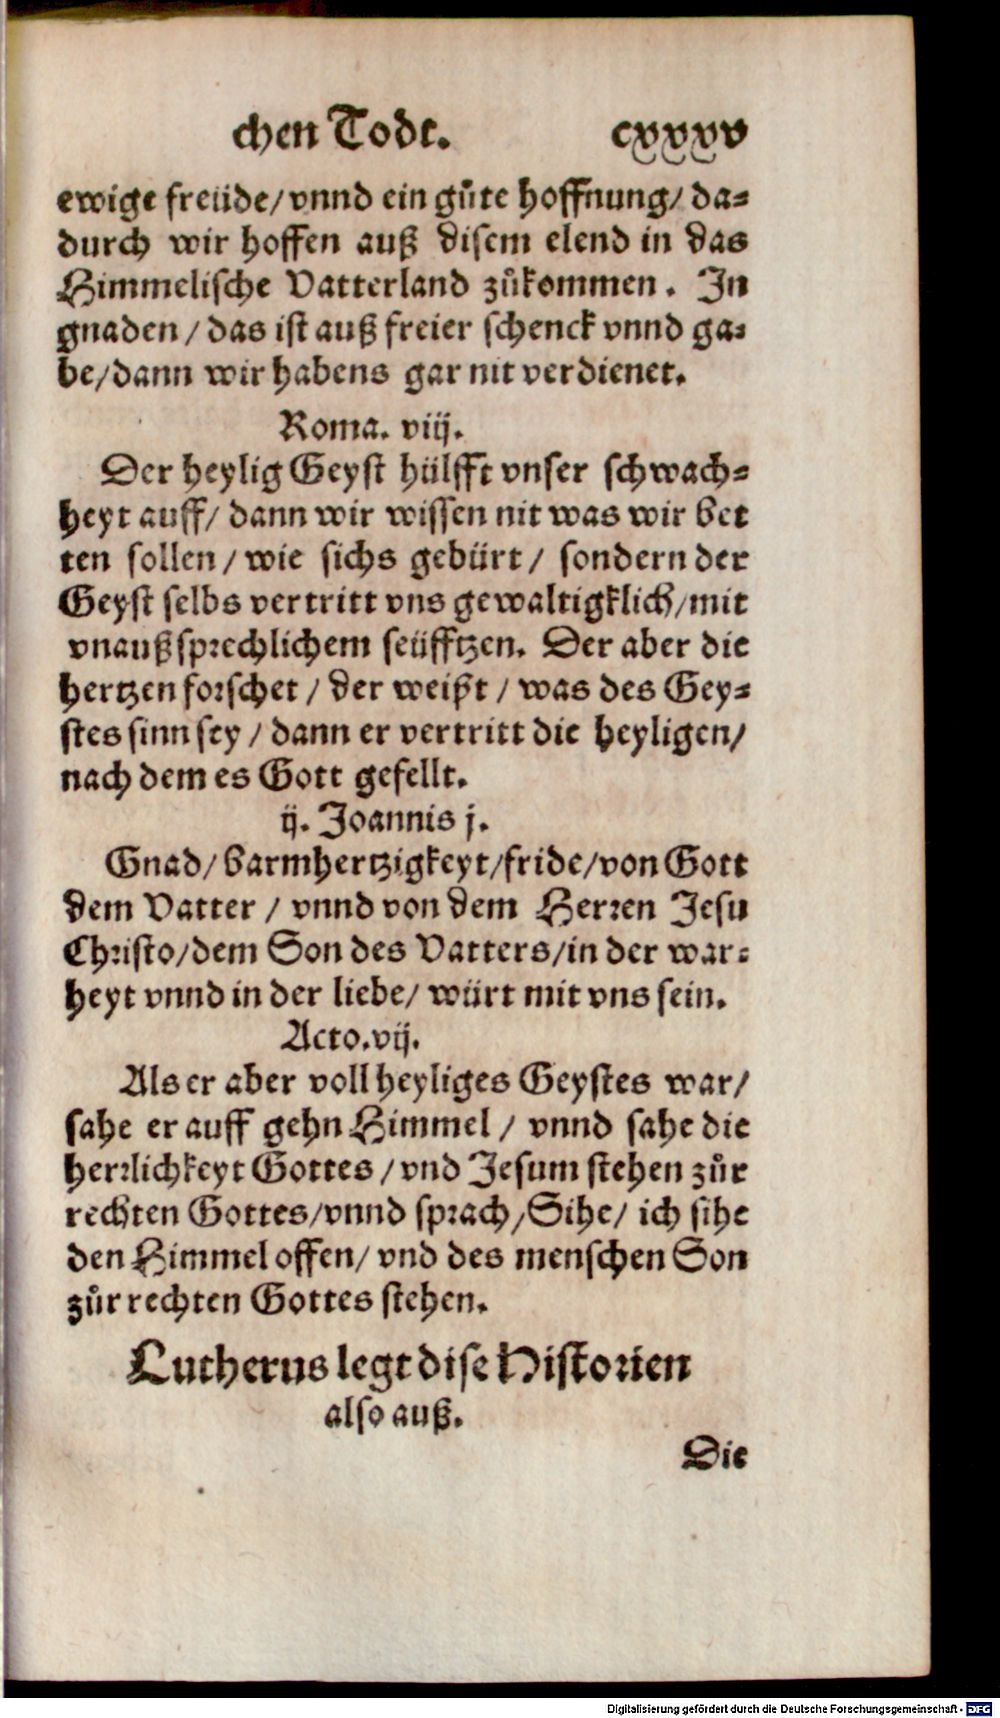 chen Todt. cxxxv
ewige freüde/ vnnd ein gůte hoffnung/ da-
durch wir hoffen auß disem elend in das
Himmelische Vatterland zůkommen. In
gnaden / das ist auß freier schenck vnnd ga-
be/ dann wir habens gar nit verdienet.
Roma. viij.
Der heylig Geyst hülfft vnser schwach-
heyt auff/ dann wir wissen nit was wir bet
ten sollen / wie sichs gebürt / sondern der
Geyst selbs vertritt vns gewaltigklich/ mit
vnaußsprechlichem seüfftzen. Der aber die
hertzen forschet / der weißt / was des Gey-
stes sinn sey / dann er vertritt die heyligen/
nach dem es Gott gefellt.
ij. Joannis j.
Gnad/ barmhertzigkeyt/ fride/ von Gott
dem Vatter / vnnd von dem Herren Jesu
Christo/ dem Son des Vatters/ in der war-
heyt vnnd in der liebe/ würt mit vns sein.
Acto. vij.
Als er aber voll heyliges Geystes war/
sahe er auff gehn Himmel / vnnd sahe die
herrlichkeyt Gottes / vnd Jesum stehen zůr
rechten Gottes/ vnnd sprach/ Sihe/ ich sihe
den Himmel offen/ vnd des menschen Son
zůr rechten Gottes stehen.
Lutherus legt dise Historien
also auß.
Die
Digitalisierung gefördert durch die Deutsche Forschungsgemeinschaft - DFG